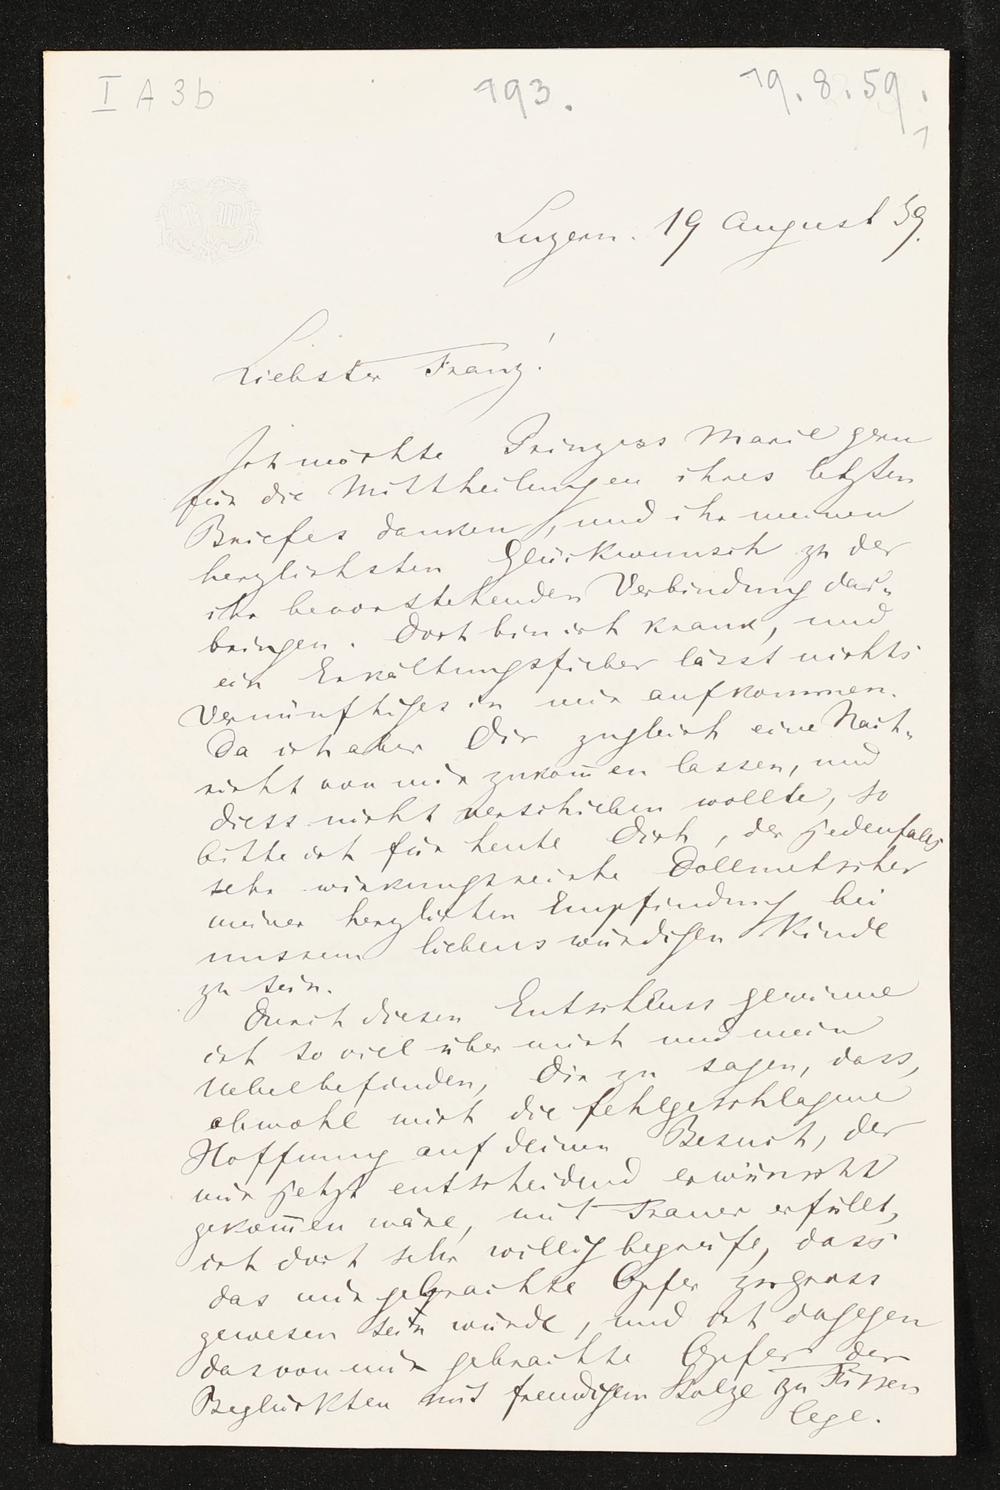 I A 3b
193.
19.8.59.
1
Luzern. 19 August 59.
Liebster Franz!
Ich möchte Prinzess Marie gern
für die Mittheilungen ihres letzten
Briefes danken, und ihr meinen
herzlichsten Glückwunsch zu der
ihr bevorstehenden Verbindung dar-
bringen. Doch bin ich krank, und
ein Erkältungsfieber lässt nichts
Vernünftiges in mir aufkommen.
Da ich aber Dir zugleich eine Nach-
richt von mir zukom̄en lassen, und
diess nicht verschieben wollte, so
bitte ich für heute Dich, der jedenfalls
sehr wirkungsreiche Dollmetscher
meiner herzlichen Empfindung bei
unsrem liebenswürdigen Kinde
zu sein.
Durch diesen Entschluss gewinne
ich so viel über mich und mein
Uebelbefinden, Dir zu sagen, dass,
obwohl mich die fehlgeschlagene
Hoffnung auf deinen Besuch, der
mir jetzt entscheidend erwünscht
gekom̄en wäre, mit Trauer erfüllt,
ich doch sehr willig begreife, dass
das mir gebrachte Opfer zu gross
gewesen sein würde, und ich dagegen
das von mir gebrachte Opfer der
Beglückten mit freudigem Stolze zu Füssen
lege.